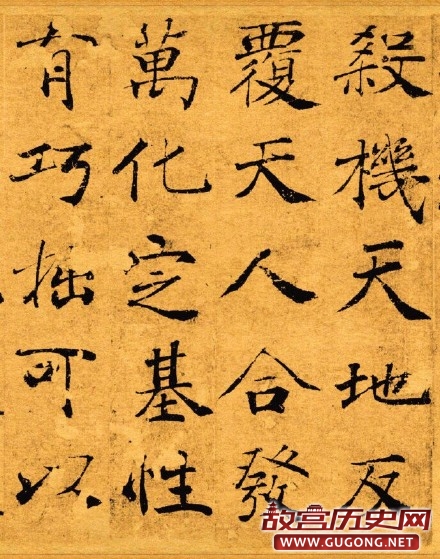 殺機天地反
覆天人合發
萬化定基性
有巧拙可以
故宫历史网
WWW.GUGONG.NET